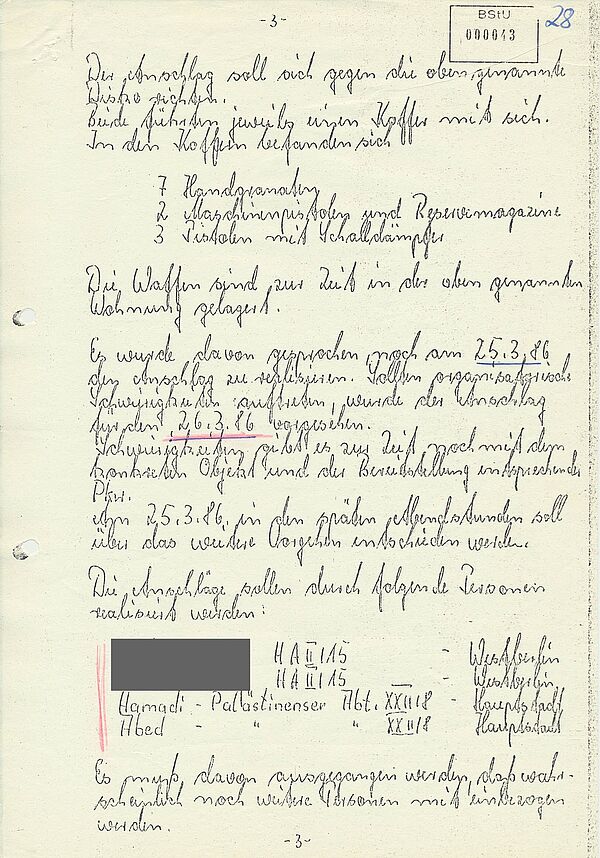 -3-
BStU
000043
28
Der Anschlag soll sich gegen die oben genannte
Disko richten.
Beide führten jeweils einen Koffer mit sich.
In den Koffern befanden sich
7 Handgranaten
2 Maschinenpistolen und Reservemagazine
3 Pistolen mit Schalldämpfer
Die Waffen sind zur Zeit in der oben genannten
Wohnung gelagert.
Es wurde davon gesprochen, noch am 25.3.86
den Anschlag zu realisieren. Sollten organisatorische
Schwierigkeiten auftreten, wurde der Anschlag
für den 26.3.86 vorgesehen.
Schwierigkeiten gibt es zur Zeit noch mit dem
konkreten Objekt und der Bereitstellung entsprechender
Pkw.
Am 25.3.86 in den späten Abendstunden soll
über das weitere Vorgehen entschieden werden.
Die Anschläge sollen durch folgende Personen
realisiert werden:
HA II/15 - Westberlin
HA II/15 - Westberlin
Hamadi - Palästinenser Abt. XXII/8 - Hauptstadt
Abed - " " XXII/8 Hauptstadt
Es muß davon ausgegangen werden, daß wahr-
scheinlich noch weitere Personen mit einbezogen
werden.
-3-